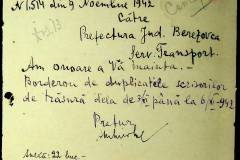 Nr 1.514 din 9 Noembrie 1942
Către
Prefectura Jud. Berezovca
Serv. Transport.
Am onoare a Vă înainta.-
Borderou de duplicatele scrisorilor
de trăsură dela de până la 6/XI-942
Pretor
Anexă: 22 buc-